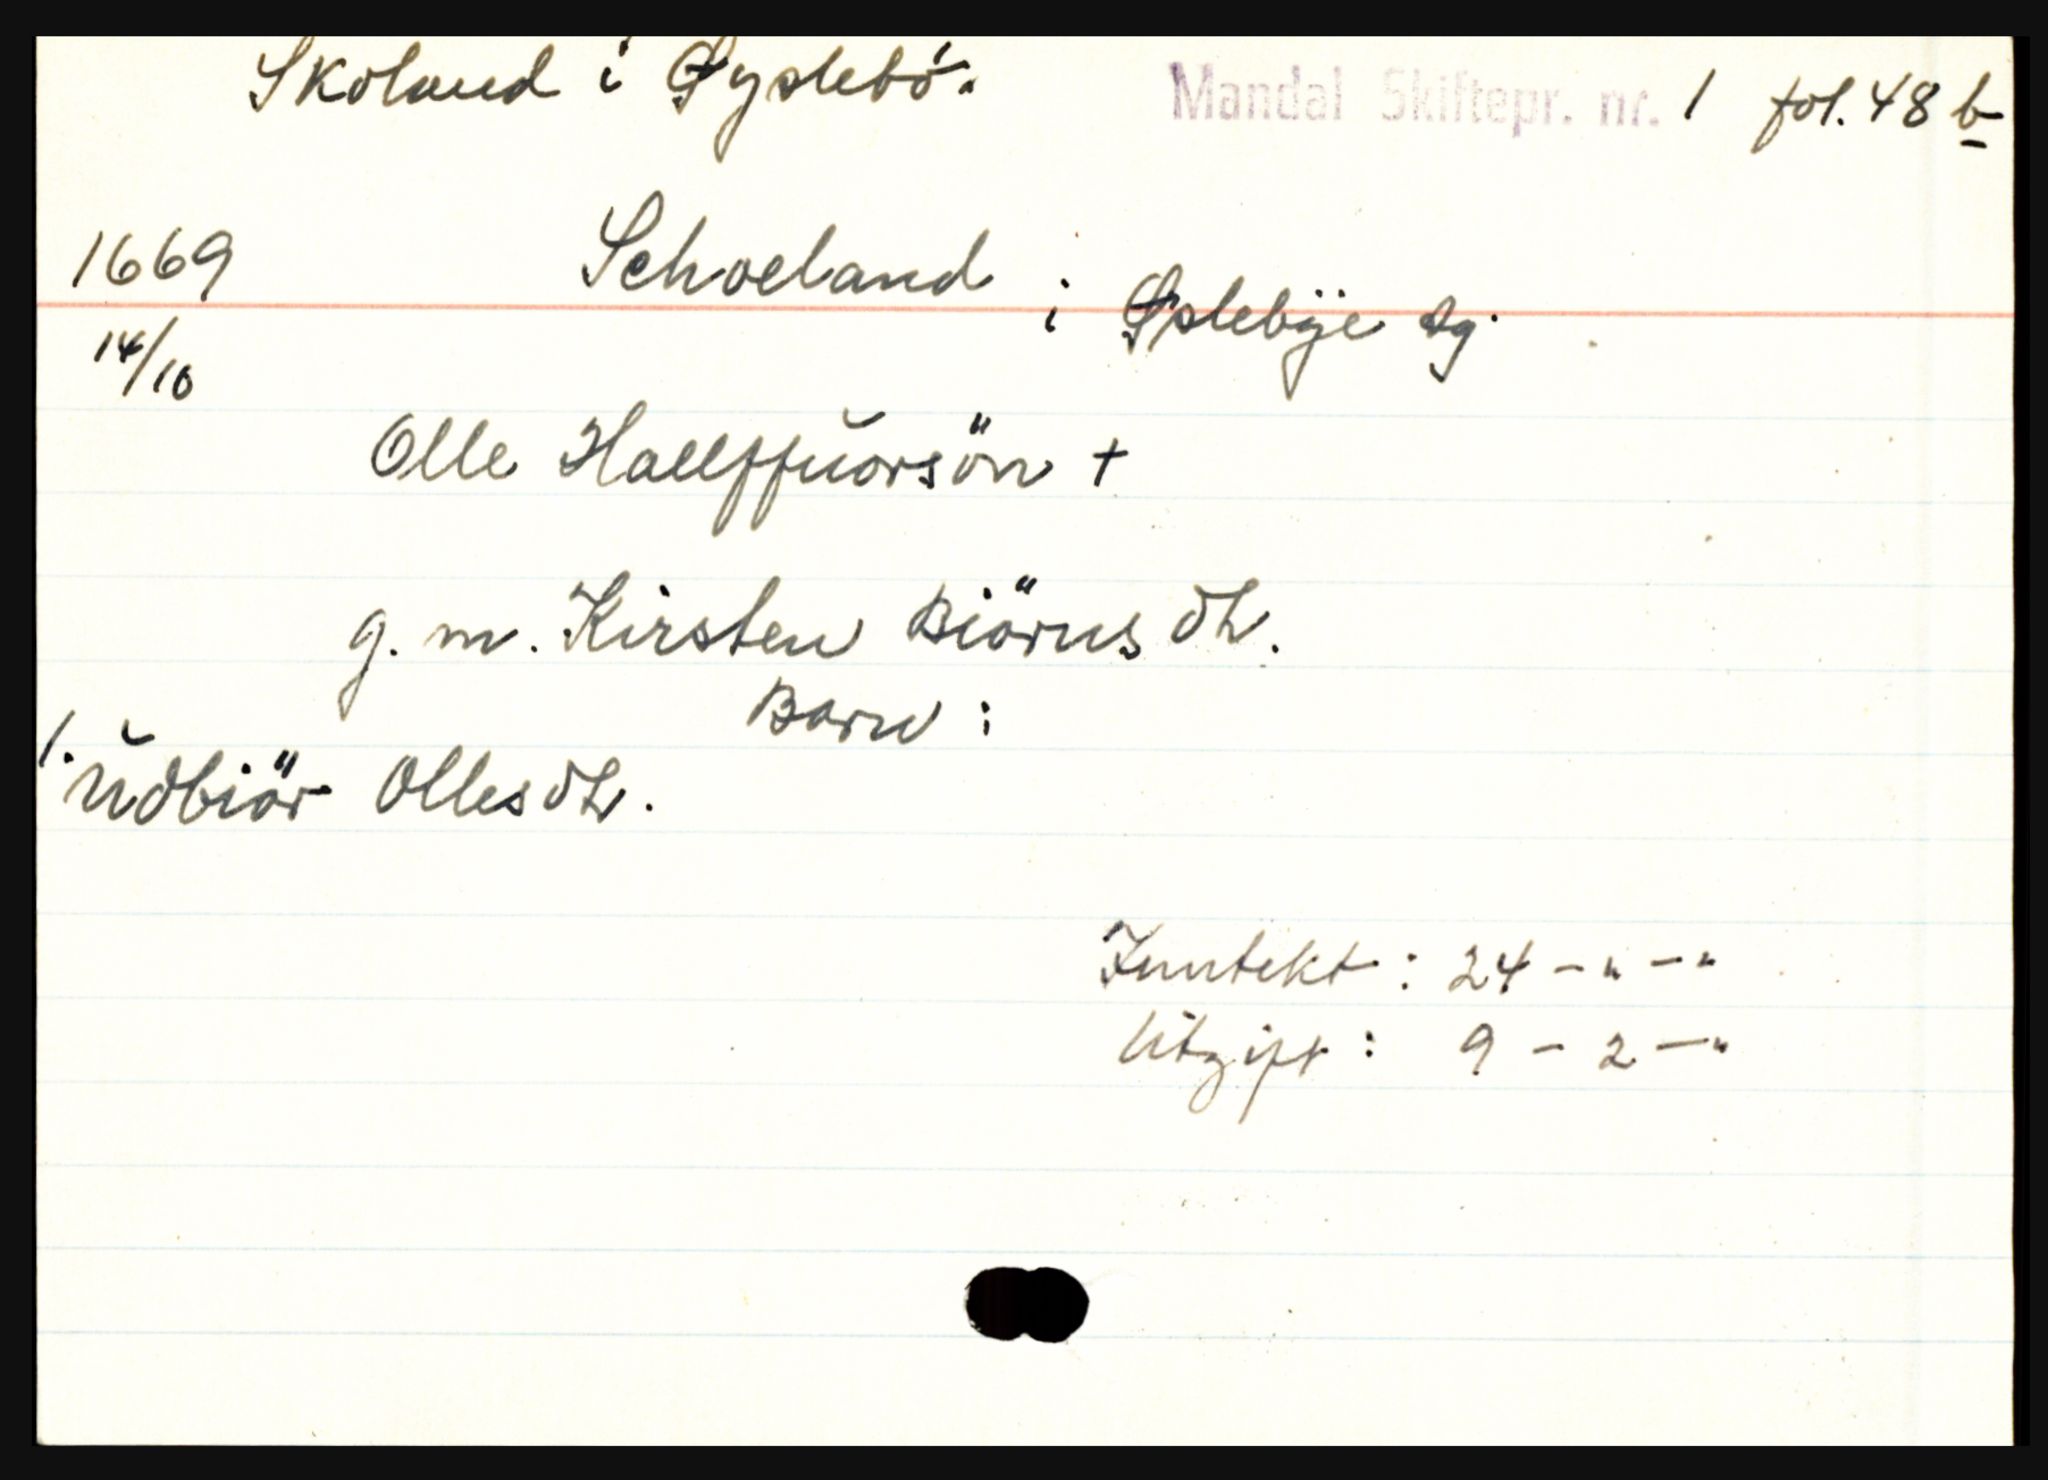 Skoland i Øyslebø. Mandal Skiftepr. nr. 1 fol. 48 b
1669 Schoeland i Øslebÿe sg.
14/10
Olle Hallffŭorsön +
g. m. Kirsten Biörns dtr.
Barn :
1. Ŭdbiör Ollesdtr.
Inntekt : 24 - " - "
Utgift : 9 - 2 - "